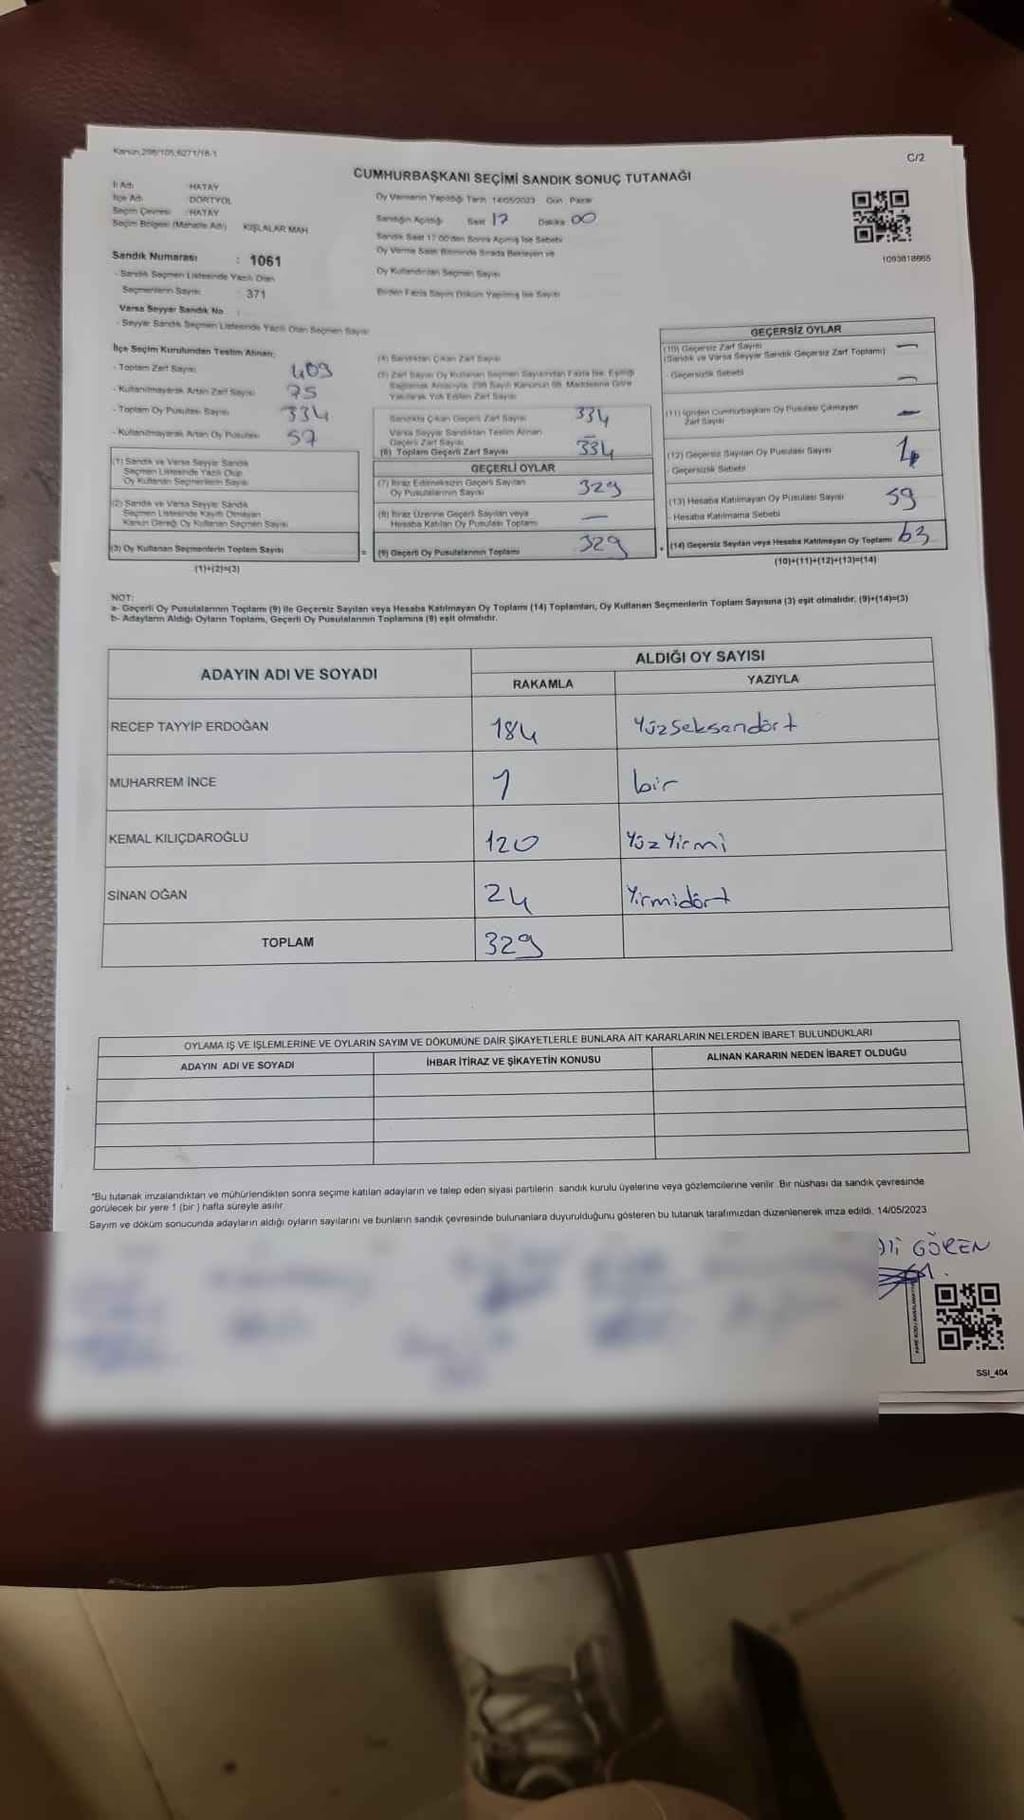 Kanun 298/105,6271/18-1
C/2
CUMHURBAŞKANI SEÇİMİ SANDIK SONUÇ TUTANAĞI
İl Adı : HATAY
İlçe Adı : DÖRTYOL
Seçim Çevresi : HATAY
Seçim Bölgesi (Mahalle Adı) KIŞLALAR MAH
Oy Vermenin Yapıldığı Tarih 14/05/2023 Gün Pazar
Sandığın Açıldığı Saat 17 Dakika 00
Sandık Saat 17.00'den Sonra Açılmış İse Sebebi
Oy Verme Saati Bitiminde Sırada Bekleyen ve
Oy Kullandırılan Seçmen Sayısı
Birden Fazla Sayım Döküm Yapılmış İse Sayısı
1093818665
Sandık Numarası : 1061
- Sandık Seçmen Listesinde Yazılı Olan
Seçmenlerin Sayısı : 371
Varsa Seyyar Sandık No :
- Seyyar Sandık Seçmen Listesinde Yazılı Olan Seçmen Sayısı
İlçe Seçim Kurulundan Teslim Alınan;
- Toplam Zarf Sayısı 409
- Kullanılmayarak Artan Zarf Sayısı 75
- Toplam Oy Pusulası Sayısı 334
- Kullanılmayarak Artan Oy Pusulası 57
(1) Sandık ve Varsa Seyyar Sandık
Seçmen Listesinde Yazılı Olup
Oy Kullanan Seçmenlerin Sayısı
(2) Sandık ve Varsa Seyyar Sandık
Seçmen Listesinde Kayıtlı Olmayan
Kanun Gereği Oy Kullanan Seçmen Sayısı
(3) Oy Kullanan Seçmenlerin Toplam Sayısı =
(1)+(2)=(3)
(4) Sandıktan Çıkan Zarf Sayısı
(5) Zarf Sayısı Oy Kullanan Seçmen Sayısından Fazla İse, Eşitliği
Sağlamak Amacıyla, 298 Sayılı Kanunun 98. Maddesine Göre
Yakılarak Yok Edilen Zarf Sayısı
Sandıkta Çıkan Geçerli Zarf Sayısı 334
Varsa Seyyar Sandıktan Teslim Alınan
Geçerli Zarf Sayısı –
(6) Toplam Geçerli Zarf Sayısı 334
GEÇERLİ OYLAR
(7) İtiraz Edilmeksizin Geçerli Sayılan
Oy Pusulalarının Sayısı 329
(8) İtiraz Üzerine Geçerli Sayılan veya
Hesaba Katılan Oy Pusulası Toplamı —
(9) Geçerli Oy Pusulalarının Toplamı 329 +
GEÇERSİZ OYLAR
(10) Geçersiz Zarf Sayısı —
(Sandık ve Varsa Seyyar Sandık Geçersiz Zarf Toplamı)
- Geçersizlik Sebebi —
(11) İçinden Cumhurbaşkanı Oy Pusulası Çıkmayan
Zarf Sayısı —
(12) Geçersiz Sayılan Oy Pusulası Sayısı 4
Geçersizlik Sebebi
(13) Hesaba Katılmayan Oy Pusulası Sayısı 59
Hesaba Katılmama Sebebi
(14) Geçersiz Sayılan veya Hesaba Katılmayan Oy Toplamı 63
(10)+(11)+(12)+(13)=(14)
NOT:
a- Geçerli Oy Pusulalarının Toplamı (9) ile Geçersiz Sayılan veya Hesaba Katılmayan Oy Toplamı (14) Toplamları, Oy Kullanan Seçmenlerin Toplam Sayısına (3) eşit olmalıdır. (9)+(14)=(3)
b- Adayların Aldığı Oyların Toplamı, Geçerli Oy Pusulalarının Toplamına (9) eşit olmalıdır.
ADAYIN ADI VE SOYADI ALDIĞI OY SAYISI
RAKAMLA YAZIYLA
RECEP TAYYİP ERDOĞAN 184 Yüzseksendört
MUHARREM İNCE 1 bir
KEMAL KILIÇDAROĞLU 120 Yüz Yirmi
SİNAN OĞAN 24 Yirmidört
TOPLAM 329
OYLAMA İŞ VE İŞLEMLERİNE VE OYLARIN SAYIM VE DÖKÜMÜNE DAİR ŞİKAYETLERLE BUNLARA AİT KARARLARIN NELERDEN İBARET BULUNDUKLARI
ADAYIN ADI VE SOYADI İHBAR İTİRAZ VE ŞİKAYETİN KONUSU ALINAN KARARIN NEDEN İBARET OLDUĞU
*Bu tutanak imzalandıktan ve mühürlendikten sonra seçime katılan adayların ve talep eden siyasi partilerin sandık kurulu üyelerine veya gözlemcilerine verilir. Bir nüshası da sandık çevresinde
görülecek bir yere 1 (bir) hafta süreyle asılır.
Sayım ve döküm sonucunda adayların aldığı oyların sayılarını ve bunların sandık çevresinde bulunanlara duyurulduğunu gösteren bu tutanak tarafımızdan düzenlenerek imza edildi. 14/05/2023
GÖREN
SSI_404